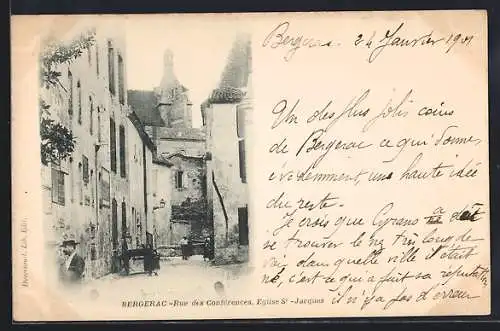 Bergerac. 24 Janvier 1901
Un des plus jolis coins
de Bergerac, ce qui donne,
évidemment, une haute idée
du reste.
Je crois que Cyrano a dû
se trouver le nez très long de
voir dans quelle ville il était
né, c'est ce qui a fait sa réputation
il n'y a pas d'erreur
BERGERAC - Rue des Conférences, Eglise St-Jacques
Lib. Edit.